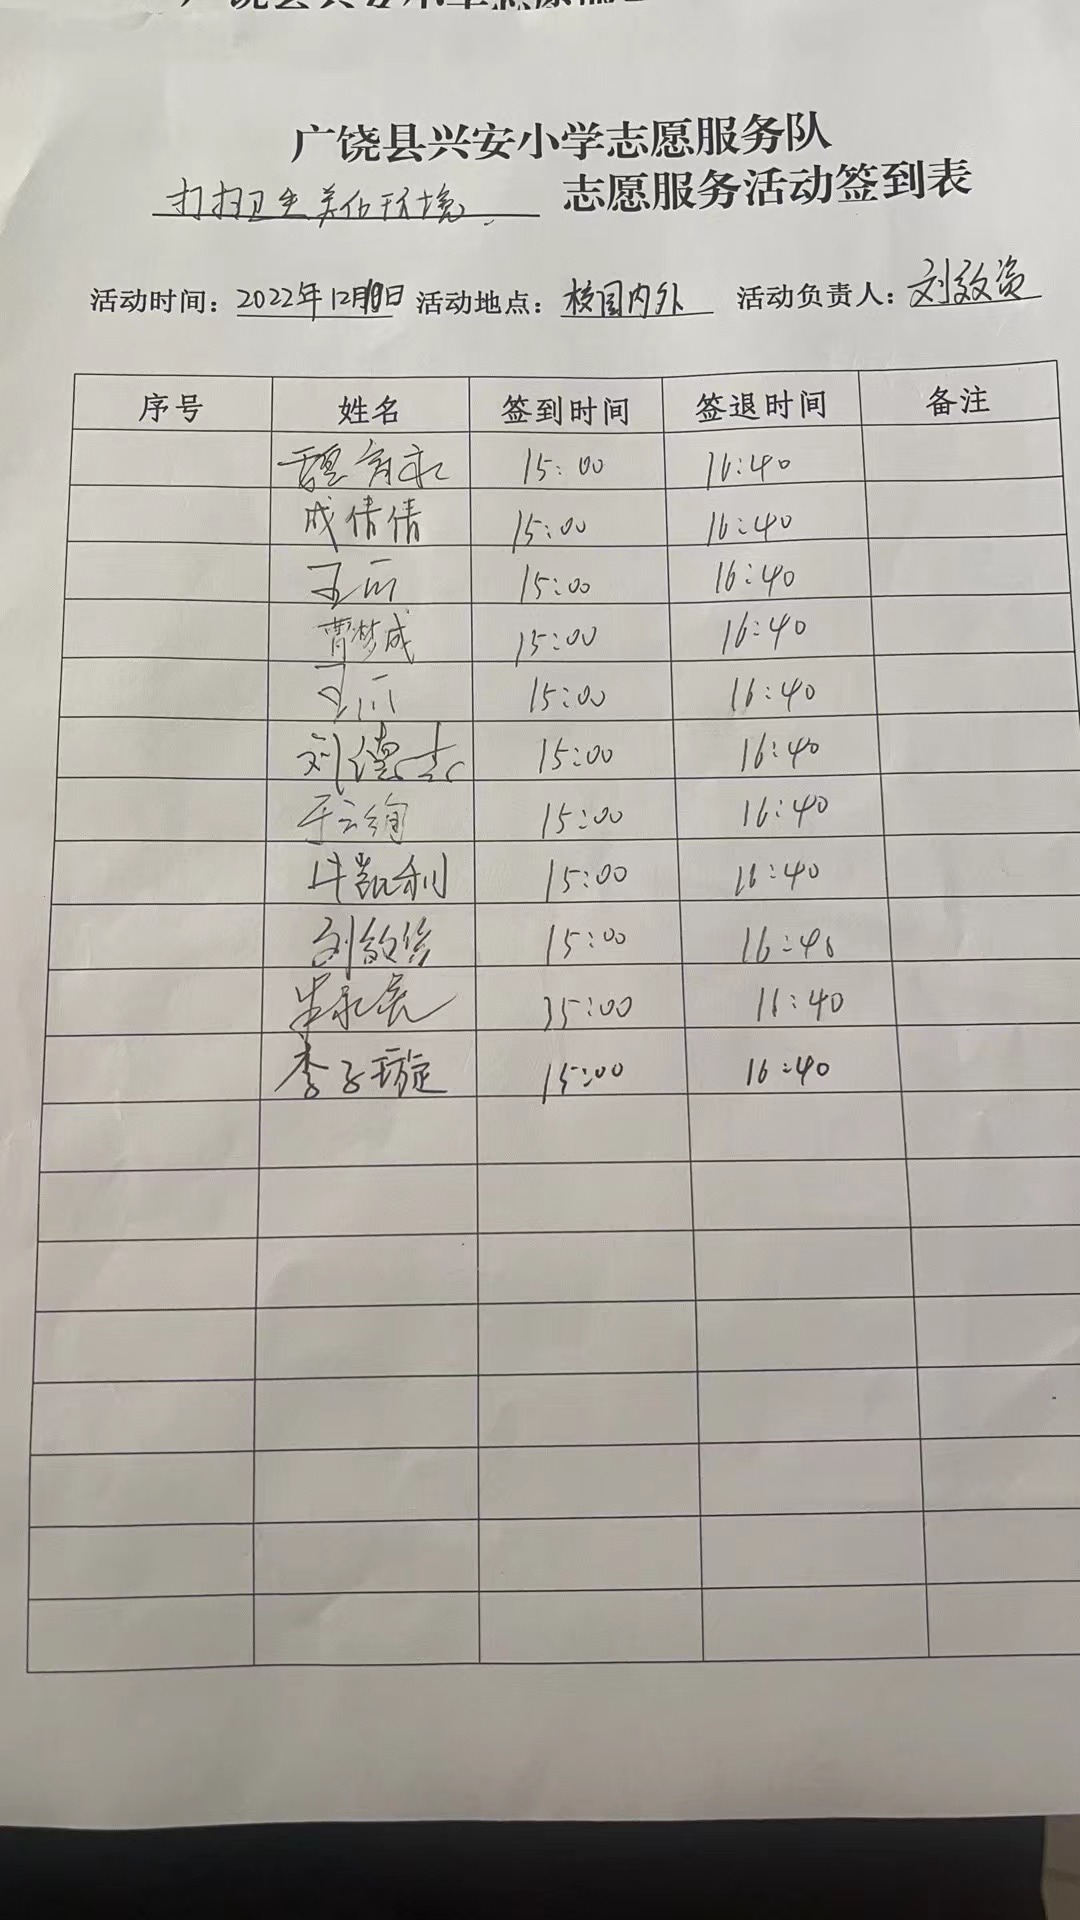 广饶县兴安小学志愿服务队
打扫卫生美化环境 志愿服务活动签到表
活动时间：2022年12月日 活动地点：校园内外 活动负责人：刘
序号 姓名 签到时间 签退时间 备注
15:00 16:40
成倩倩 15:00 16:40
15:00 16:40
曹梦成 15:00 16:40
15:00 16:40
刘德志 15:00 16:40
于云绚 15:00 16:40
牛凯利 15:00 16:40
刘 15:00 16:40
永 15:00 16:40
李子璇 15:00 16:40